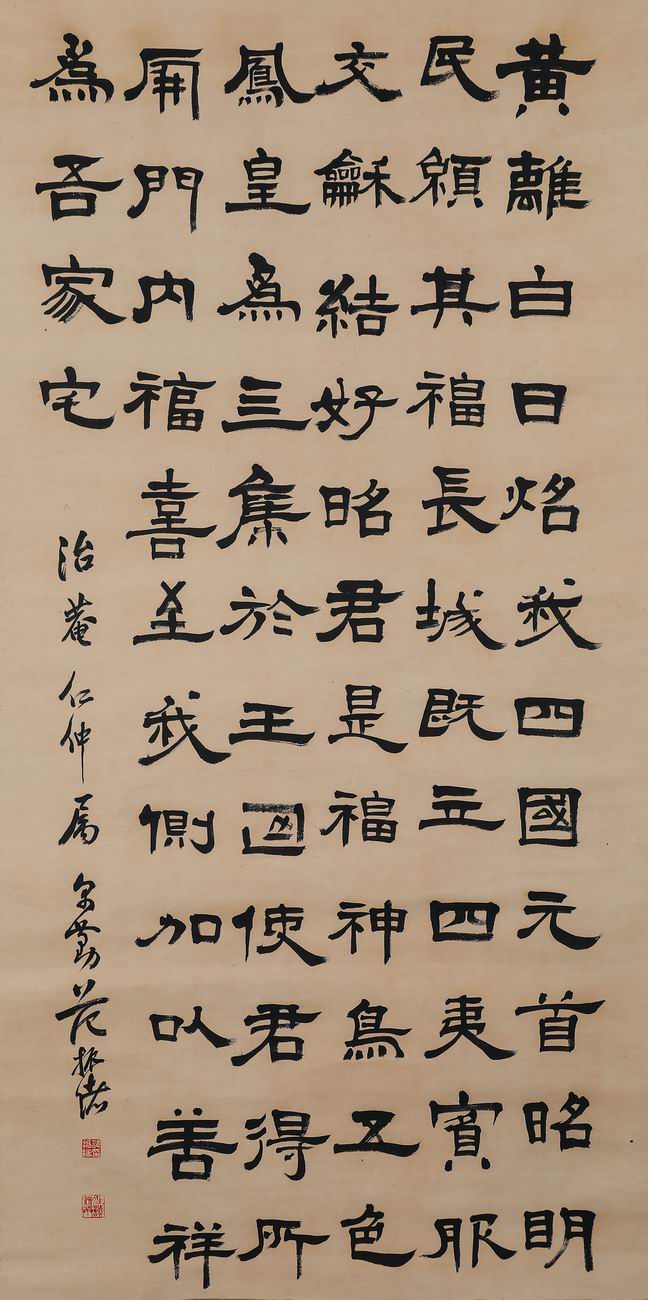 黃離白日炤我四國元首昭明
民賴其福長城既立四夷賓服
交龢結好昭君是福神鳥五色
鳳皇爲三集於王使君得所
開門内福喜至我側加以善祥
爲吾家宅
治菴仁仲属 禹勤范振緒